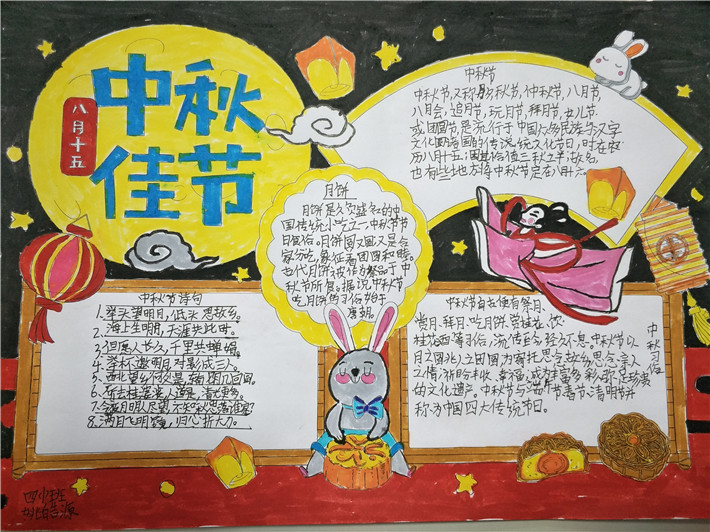 中秋佳节
八月十五
中秋节
中秋节,又称月夕,秋节,仲秋节,八月节,
八月会,追月节,玩月节,拜月节,女儿节
或团圆节,是流行于中国众多民族与汉字
文化圈诸国的传统文化节日,时在农
历八月十五;因其恰值三秋之半,故名,
也有些地方将中秋节定在八月十六
月饼
月饼是久负盛名的中
国传统小吃之一,中秋节节
日食俗。月饼圆又圆又是合
家分吃,象征着团圆和睦。
古代月饼被作为祭品于中
秋节所食。据说中秋节
吃月饼的习俗始于
唐朝。
中秋节诗句
1.举头望明月,低头思故乡。
2.海上生明月,天涯共此时。
3.但愿人长久,千里共婵娟。
4.举杯邀明月,对影成三人。
5.西北望乡何处是,
8.满月飞明镜,归心折大刀。
中秋习俗
中秋节自古便有祭月、
赏月、拜月、吃月饼、赏桂花、饮
桂花酒等习俗,流传至今,经久不息。中秋节以
月之圆兆人之团圆,为寄托思念故乡,思念亲人
之情,祈盼丰收、幸福,成为丰富多彩、弥足珍贵
的文化遗产。中秋节与端午节、春节、清明节并
称为中国四大传统节日。